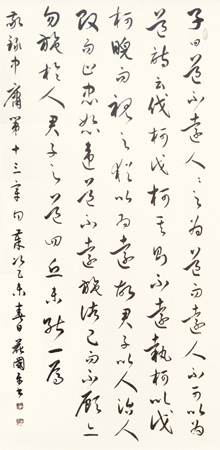 子曰道不遠人々之為道人不可以為
道詩云伐柯伐柯其則不遠執柯以伐
柯睨而視之猶以為遠故君子以人治人
改而止忠恕違道不遠施諸己而不願亦
勿施於人君子之道四丘未能一焉
敬錄中庸第十三章句歲次乙未春日書